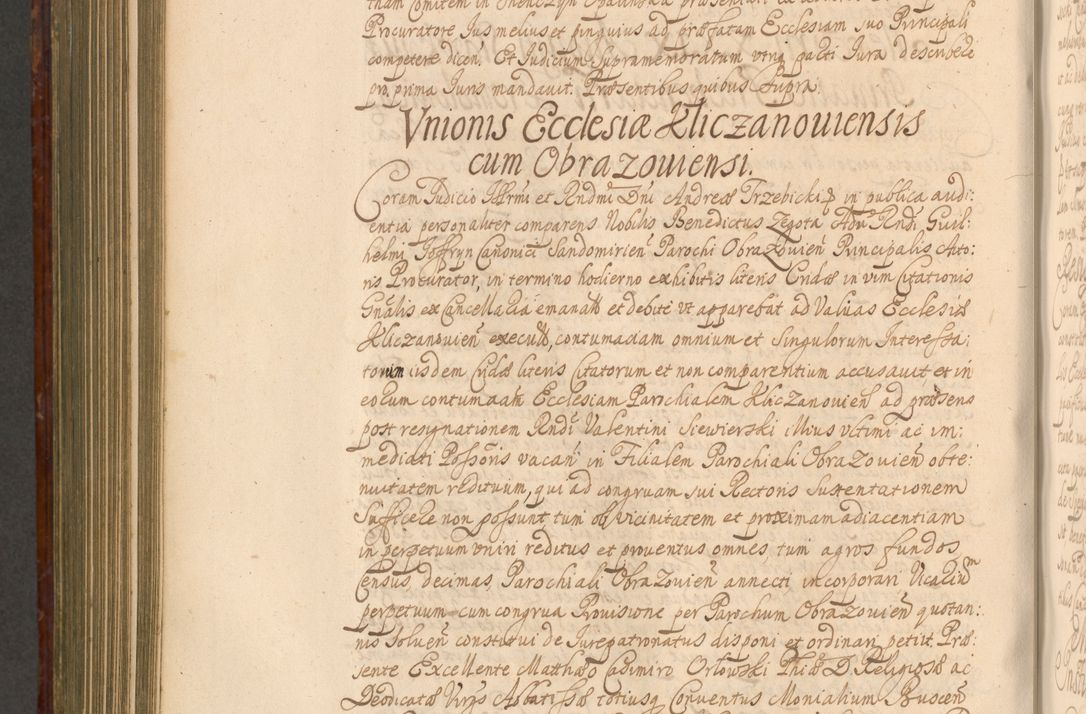 Procuratore, Jus melius et pinguius ad præfatam Ecclesiam suo Principali
competere dicen. Et Judicium Supramemoratum utriq parti Jura describere
pro prima Juris mandavit. Præsentibus quibus Supra.
Vnionis Ecclesiæ Kliczanouiensis
cum Obrazouiensi.
Coram Judicio Illrmi et Rndmi Dni Andreæ Trzebicki in publica audi:
entia personaliter comparens Nobilis Benedictus Zegota Adm Rndi Guil:
helmi Joffryn Canonici Sandomirien Parochi Obrazouien Principalis Acto:
ris Procurator, in termino hodierno exhibitis literis Cridæ in vim Citationis
Gnalis ex Cancellaria emanatis et debite vt apparebat ad Valuas Ecclesiæ
Kliczanouien executis, contumaciam omnium et Singulorum Interessa:
torum iisdem Cridæ literis Citatorum et non comparentium accusauit et in
eorum contumaciam Ecclesiam Parochialem Kliczanouien ad præsens
post resignationem Rndi Valentini Siewierski illius vltimi ac im:
mediati Possoris vacan in Filialem Parochiali Obrazouien obte:
nuitatem redituum, qui ad congruam sui Rectoris Sustentationem
Sufficere non possunt tum ob vicinitatem et proximam adiacentiam
in perpetuum vniri reditus et prouentus omnes, tum agros fundos
Census, decimas, Parochiali Obrazouien annecti incorporari Vicarium
perpetuum cum congrua Prouisione per Parochum Obrazouien quotan:
nis soluen constitui de Jurepatronatus disponi et ordinari petiit. Præ:
sente Excellente Matthæo Casimiro Orlowski Phiæ D. Religiosæ ac
Deodicatæ Virgs Abbatissæ totiusq Conventus Monialium Buscen